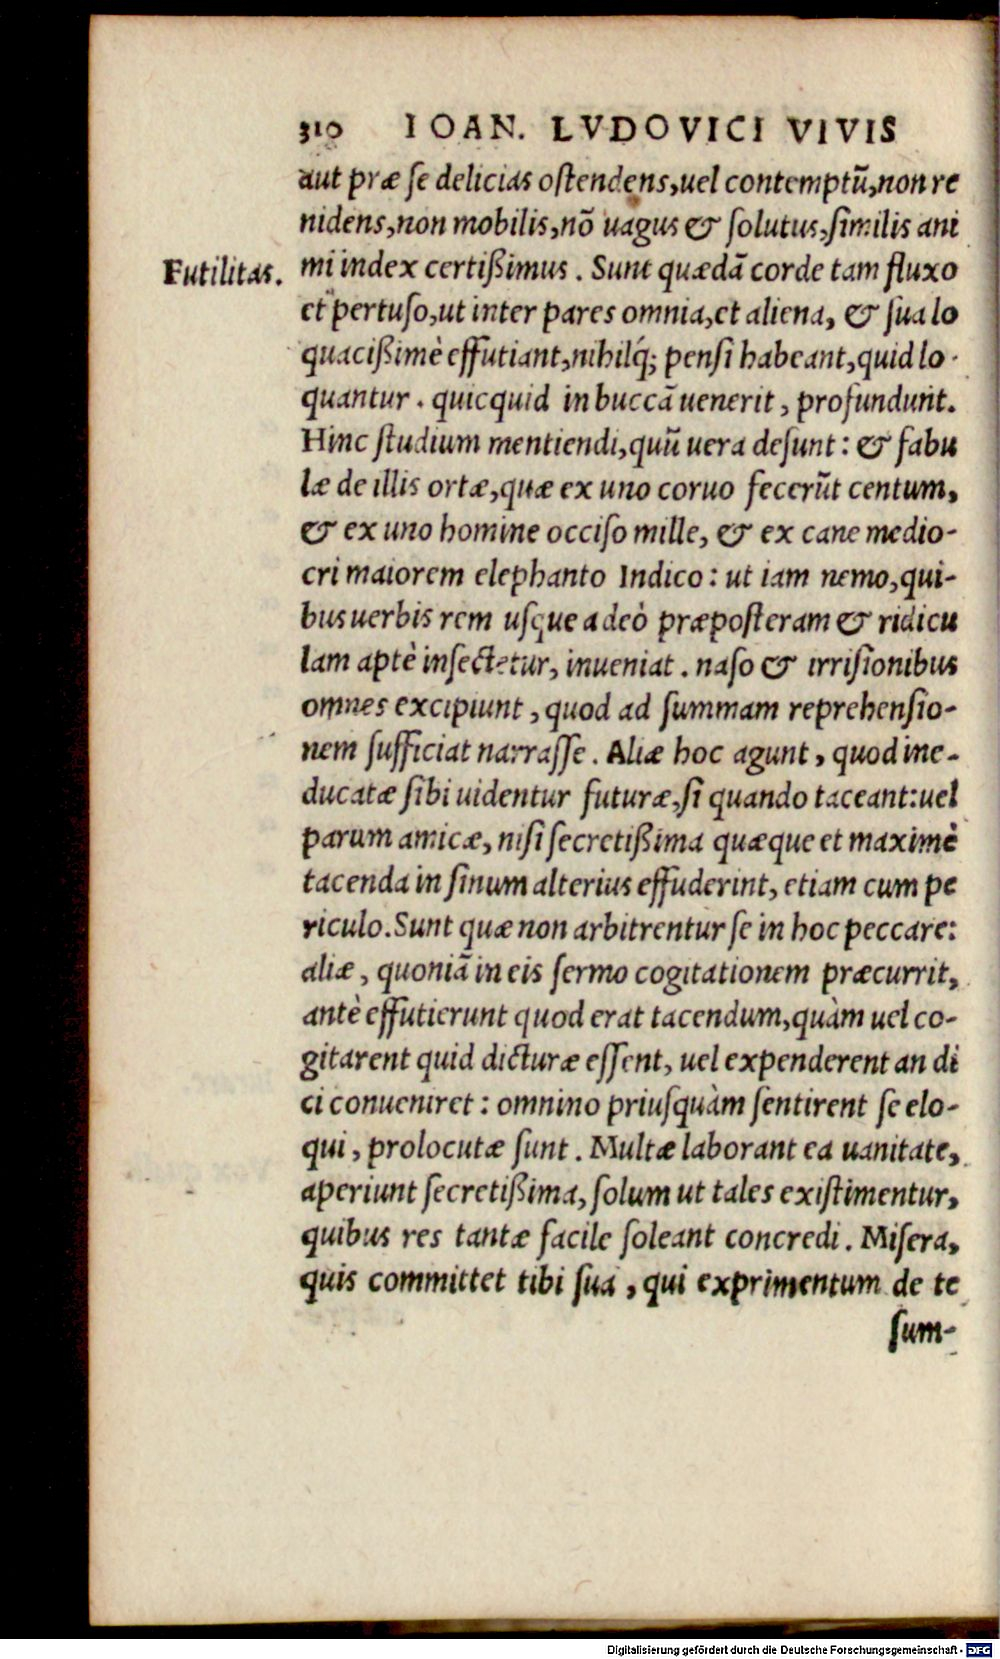 310 IOAN. LVDOVICI VIVIS
aut præ se delicias ostendens,uel contemptũ,non re
nidens,non mobilis,nõ uagus & solutus,similis ani
Futilitas. mi index certißimus. Sunt quædã corde tam fluxo
et pertuso,ut inter pares omnia,et aliena, & sua lo
quacißimè effutiant,nihilq́; pensi habeant,quid lo-
quantur. quicquid in buccã uenerit, profundunt.
Hinc studium mentiendi,quũ uera desunt: & fabu
læ de illis ortæ,quæ ex uno coruo fecerũt centum,
& ex uno homine occiso mille, & ex cane medio-
cri maiorem elephanto Indico: ut iam nemo,qui-
bus uerbis rem usque adeò præposteram & ridicu
lam aptè insectetur, inueniat. naso & irrisionibus
omnes excipiunt, quod ad summam reprehensio-
nem sufficiat narrasse. Aliæ hoc agunt, quod ine-
ducatæ sibi uidentur futuræ,si quando taceant:uel
parum amicæ, nisi secretißima quæque et maximè
tacenda in sinum alterius effuderint, etiam cum pe
riculo. Sunt quæ non arbitrentur se in hoc peccare:
aliæ, quoniã in eis sermo cogitationem præcurrit,
antè effutierunt quod erat tacendum,quàm uel co-
gitarent quid dicturæ essent, uel expenderent an di
ci conueniret: omnino priusquàm sentirent se elo-
qui, prolocutæ sunt. Multæ laborant ea uanitate,
aperiunt secretißima, solum ut tales existimentur,
quibus res tantæ facile soleant concredi. Misera,
quis committet tibi sua, qui exprimentum de te
sum-
Digitalisierung gefördert durch die Deutsche Forschungsgemeinschaft - DFG